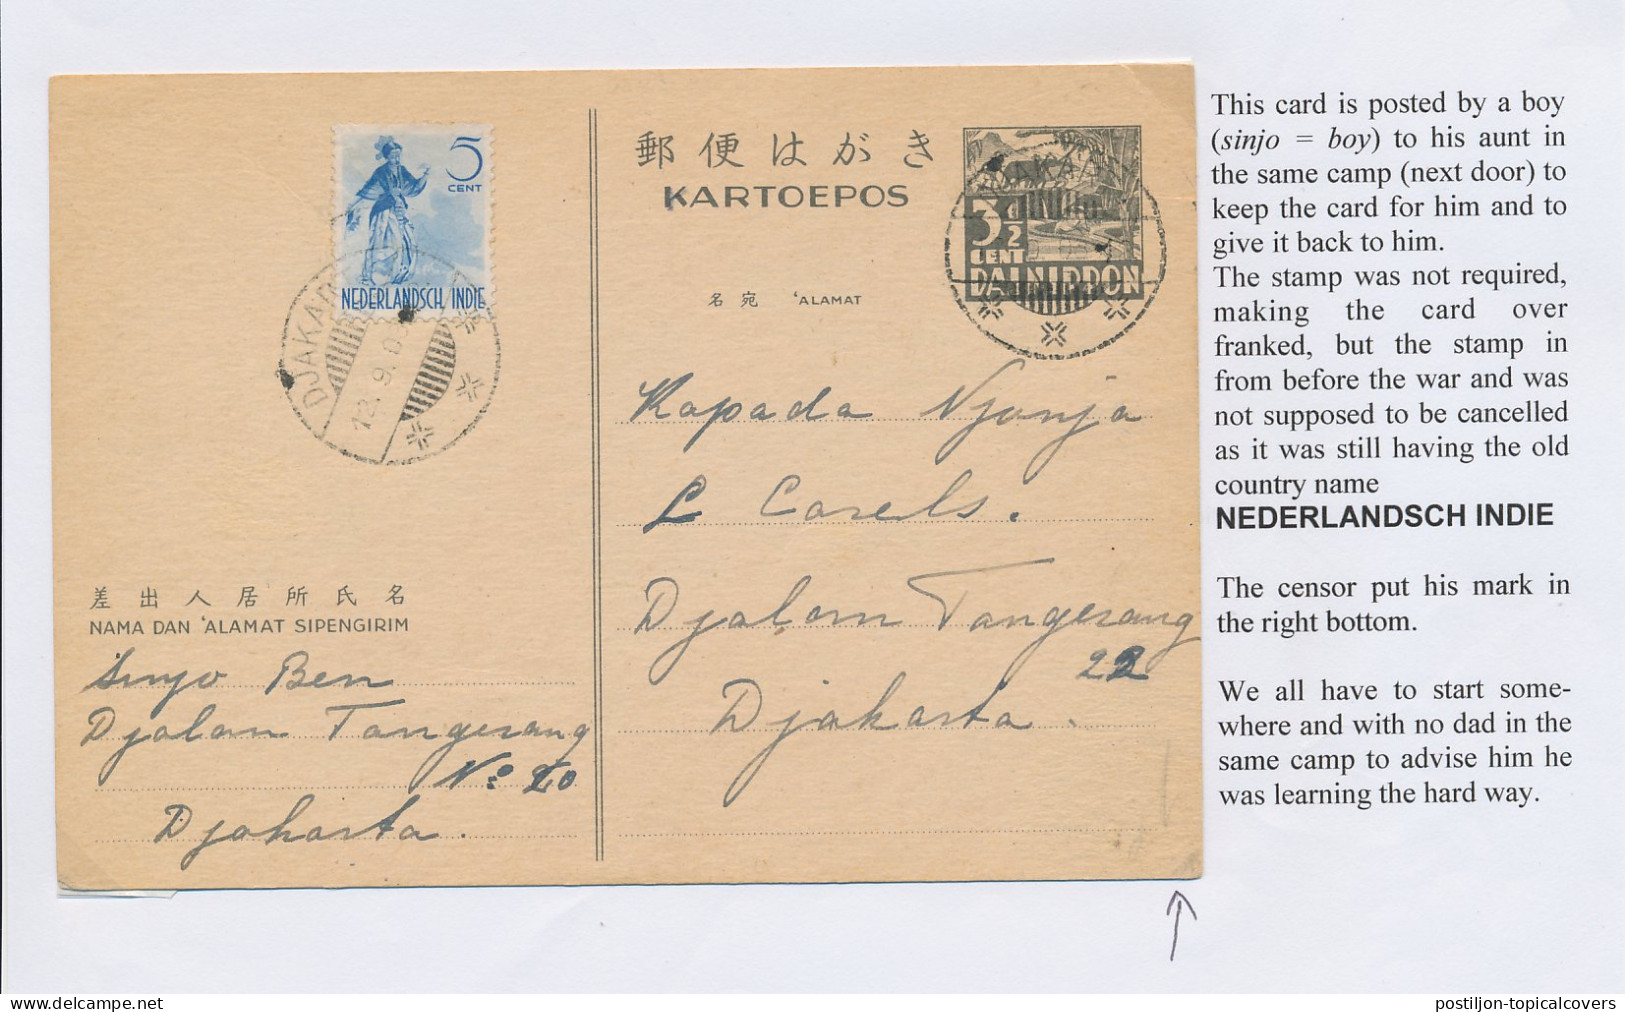 5
CENT
NEDERLANDSCH INDIE
DJAKARTA
12.9.0
郵便はがき
KARTOEPOS
DJAKARTA
3 1/2
CENT
DAI NIPPON
名宛 'ALAMAT
Kapada Njonja
L Carels.
Djalan Tangerang
22
Djakarta.
差出人居所氏名
NAMA DAN 'ALAMAT SIPENGIRIM
Sinjo Ben
Djalan Tangerang
No 20
Djakarta.
This card is posted by a boy
(sinjo = boy) to his aunt in
the same camp (next door) to
keep the card for him and to
give it back to him.
The stamp was not required,
making the card over
franked, but the stamp in
from before the war and was
not supposed to be cancelled
as it was still having the old
country name
NEDERLANDSCH INDIE
The censor put his mark in
the right bottom.
We all have to start some-
where and with no dad in the
same camp to advise him he
was learning the hard way.
Delcampe.net
postiljon-topicalcovers